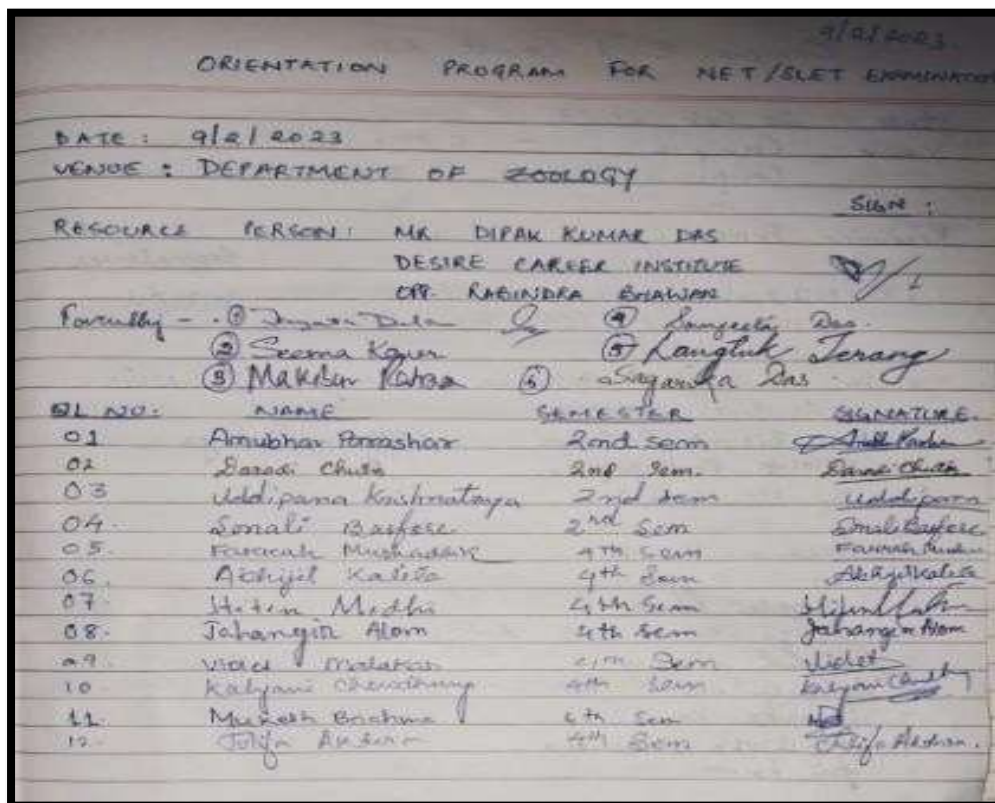 9/2/2023
ORIENTATION PROGRAM FOR NET/SLET EXAMINATION
DATE : 9/2/2023
VENUE : DEPARTMENT OF ZOOLOGY
SIGN :
RESOURCE PERSON : MR DIPAK KUMAR DAS
DESIRE CAREER INSTITUTE
OPP. RABINDRA BHAWAN
Faculty - ① ④ Sangeeta Das.
② Seema ⑤ Langtuk Terang
③ ⑥ Sagarika Das
SL NO. NAME SEMESTER SIGNATURE.
01 Anubhav Parashar 2nd sem
02 Daradi Chutia 2nd Sem. Daradi Chutia
03 Uddipana 2nd sem Uddipana
04. Sonali Basfore 2nd Sem Sonali Basfore
05. Farzana 4th Sem
06. Abhijit Kalita 4th Sem Abhijit Kalita
07 Hiten Medhi 4th Sem
08. Jahangir Alom 4th sem Jahangir Alom
09. Violet Malakar 4th Sem Violet
10 Kalyani Choudhury 4th Sem Kalyani
11. Mukesh Brahma 4th Sem
12. 4th Sem